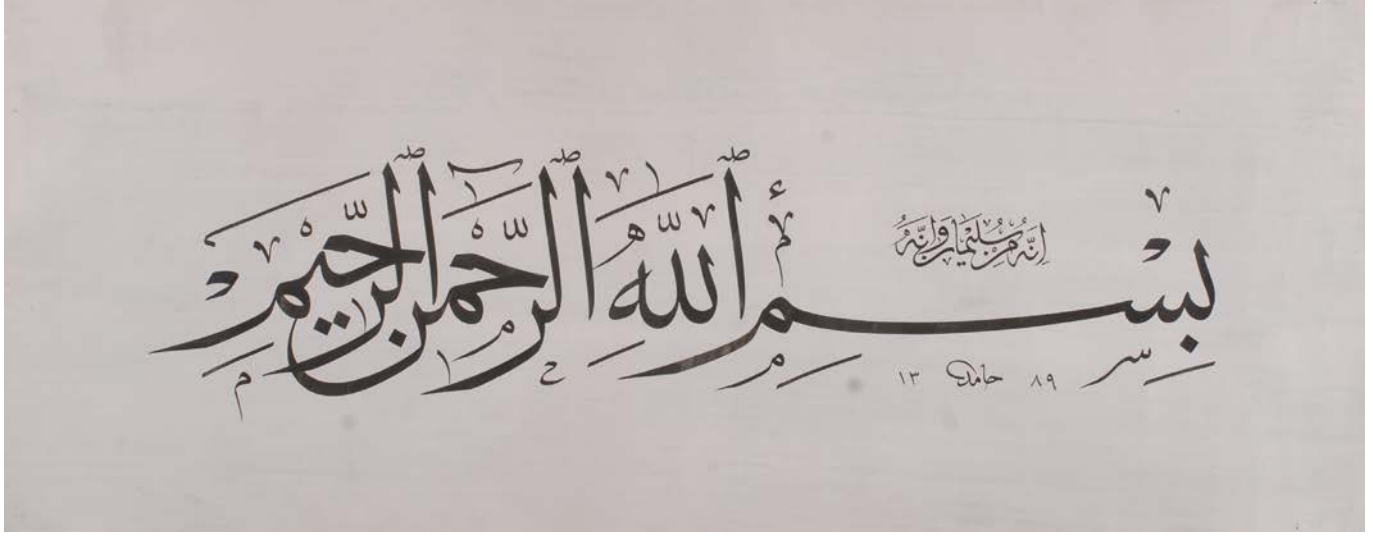 إِنَّهُ مِنْ سُلَيْمَانَ وَإِنَّهُ
بِسْمِ ٱللَّهِ ٱلرَّحْمٰنِ ٱلرَّحِيمِ
١٣ حامد ٨٩